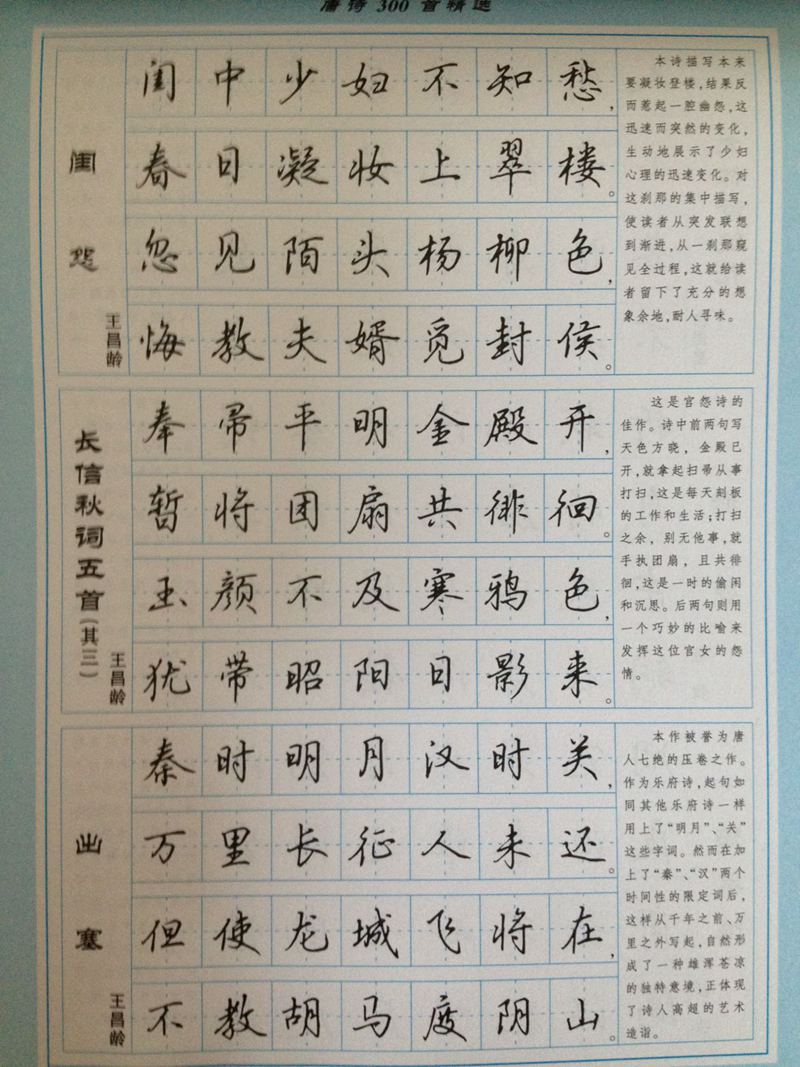 唐诗 300 首精选
闺怨
王昌龄
闺中少妇不知愁，
春日凝妆上翠楼。
忽见陌头杨柳色，
悔教夫婿觅封侯。
本诗描写本来
要凝妆登楼，结果反
而惹起一腔幽怨，这
迅速而突然的变化，
生动地展示了少妇
心理的迅速变化。对
这刹那的集中描写，
使读者从突发联想
到渐进，从一刹那窥
见全过程，这就给读
者留下了充分的想
象余地，耐人寻味。
长信秋词五首（其三）
王昌龄
奉帚平明金殿开，
暂将团扇共徘徊。
玉颜不及寒鸦色，
犹带昭阳日影来。
这是宫怨诗的
佳作。诗中前两句写
天色方晓，金殿已
开，就拿起扫帚从事
打扫，这是每天刻板
的工作和生活；打扫
之余，别无他事，就
手执团扇，且共徘
徊，这是一时的偷闲
和沉思。后两句则用
一个巧妙的比喻来
发挥这位宫女的怨
情。
出塞
王昌龄
秦时明月汉时关，
万里长征人未还。
但使龙城飞将在，
不教胡马度阴山。
本作被誉为唐
人七绝的压卷之作。
作为乐府诗，起句如
同其他乐府诗一样
用上了“明月”、“关”
这些字词。然而在加
上了“秦”、“汉”两个
时间性的限定词后，
这样从千年之前、万
里之外写起，自然形
成了一种雄浑苍凉
的独特意境，正体现
了诗人高超的艺术
造诣。